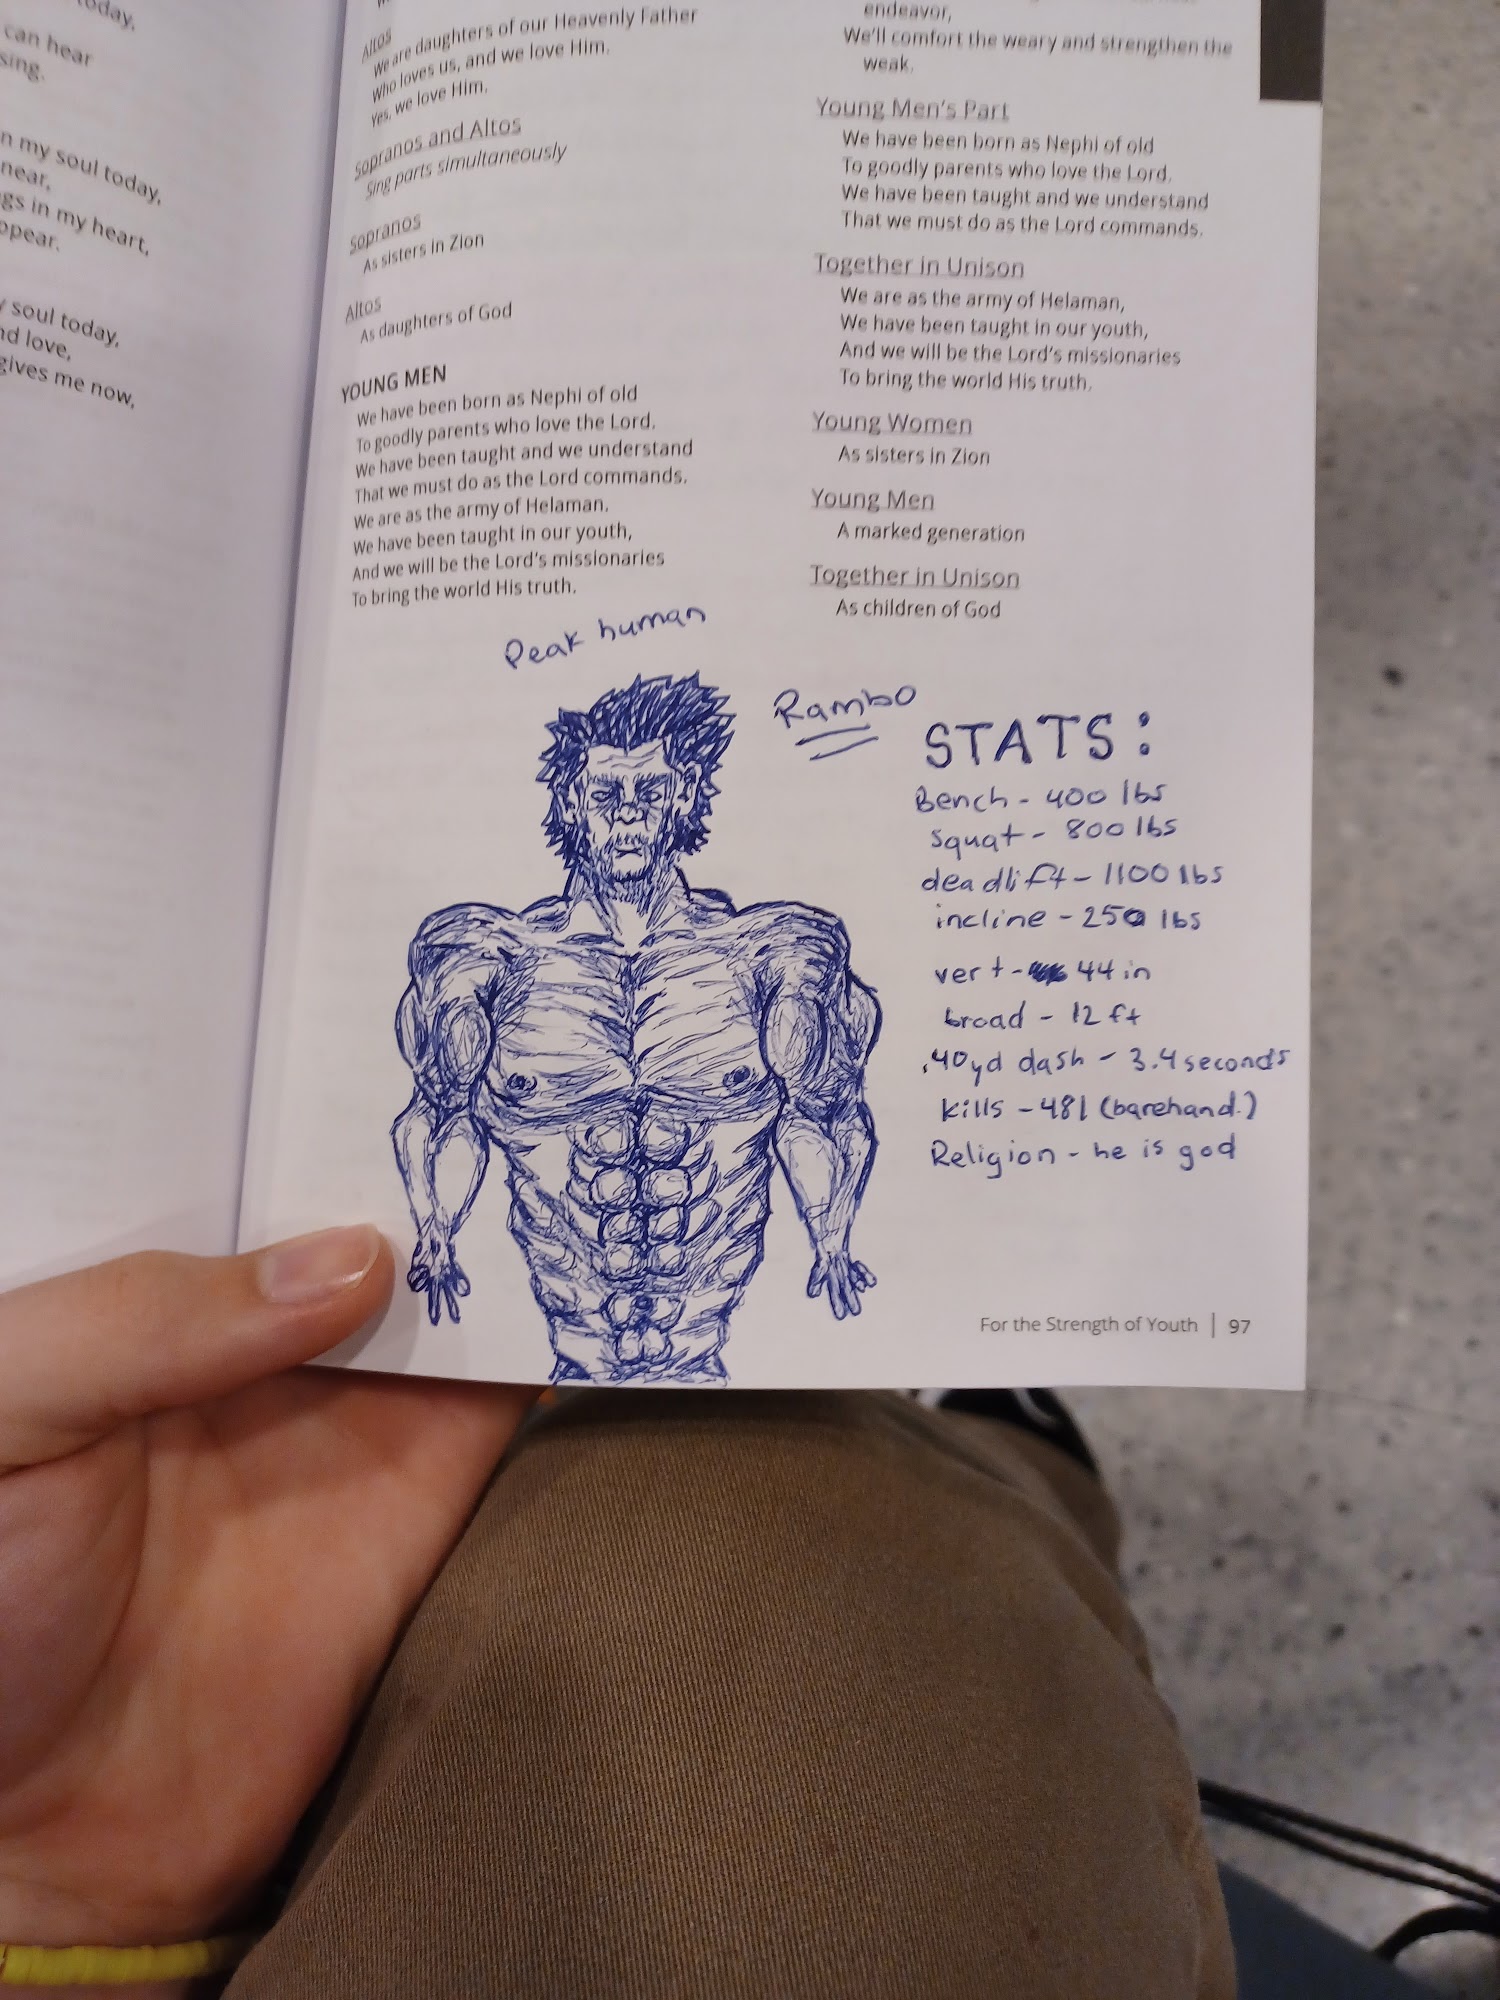 today,
can hear
sing.
n my soul today,
near,
gs in my heart,
ppear.
y soul today,
nd love,
gives me now,
Altos
We are daughters of our Heavenly Father
Who loves us, and we love Him.
Yes, we love Him.
Sopranos and Altos
Sing parts simultaneously
Sopranos
As sisters in Zion
Altos
As daughters of God
YOUNG MEN
We have been born as Nephi of old
To goodly parents who love the Lord.
We have been taught and we understand
That we must do as the Lord commands.
We are as the army of Helaman.
We have been taught in our youth,
And we will be the Lord's missionaries
To bring the world His truth.
endeavor,
We'll comfort the weary and strengthen the
weak.
Young Men's Part
We have been born as Nephi of old
To goodly parents who love the Lord.
We have been taught and we understand
That we must do as the Lord commands.
Together in Unison
We are as the army of Helaman,
We have been taught in our youth,
And we will be the Lord's missionaries
To bring the world His truth.
Young Women
As sisters in Zion
Young Men
A marked generation
Together in Unison
As children of God
Peak human
Rambo
STATS:
Bench - 400 lbs
squat - 800 lbs
deadlift - 1100 lbs
incline - 250 lbs
vert - 44 in
broad - 12 ft
.40yd dash - 3.4 seconds
kills - 481 (barehand.)
Religion - he is god
For the Strength of Youth | 97